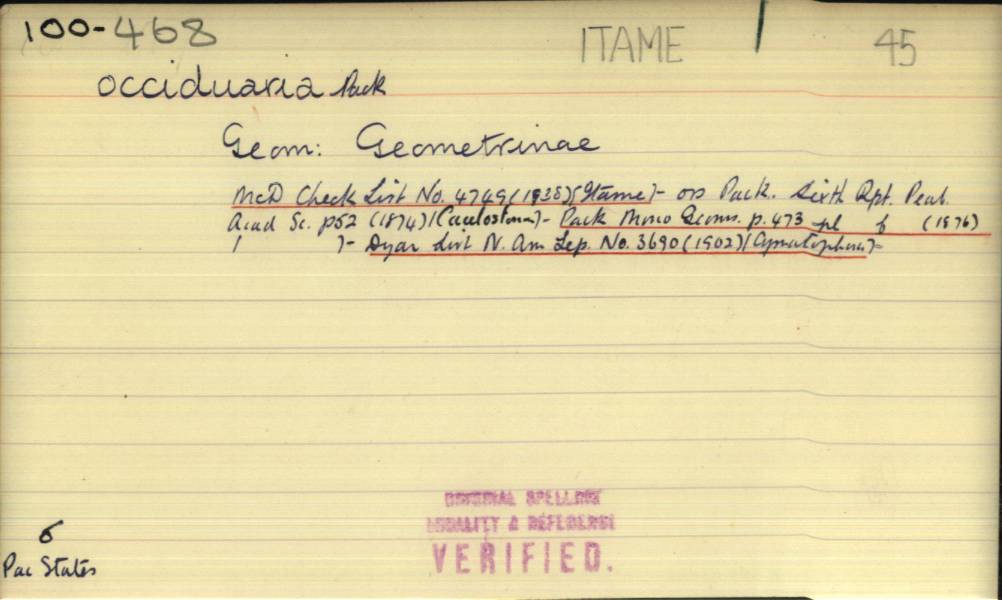 100-468 ITAME 45
occiduaria Pack
Geom: Geometrinae
McD Check List No. 4749 (1938) (Itame) - OD Pack. Sixth Rpt. Peab.
Acad Sc. p52 (1874) (Caulostoma) - Pack Mono Geoms. p. 473 pl f (1876)
( ) - Dyar List N. Am Lep. No. 3690 (1902) (Cymatophora) -
ORIGINAL SPELLING
LOCALITY & REFERENCE
VERIFIED.
6
Pac States